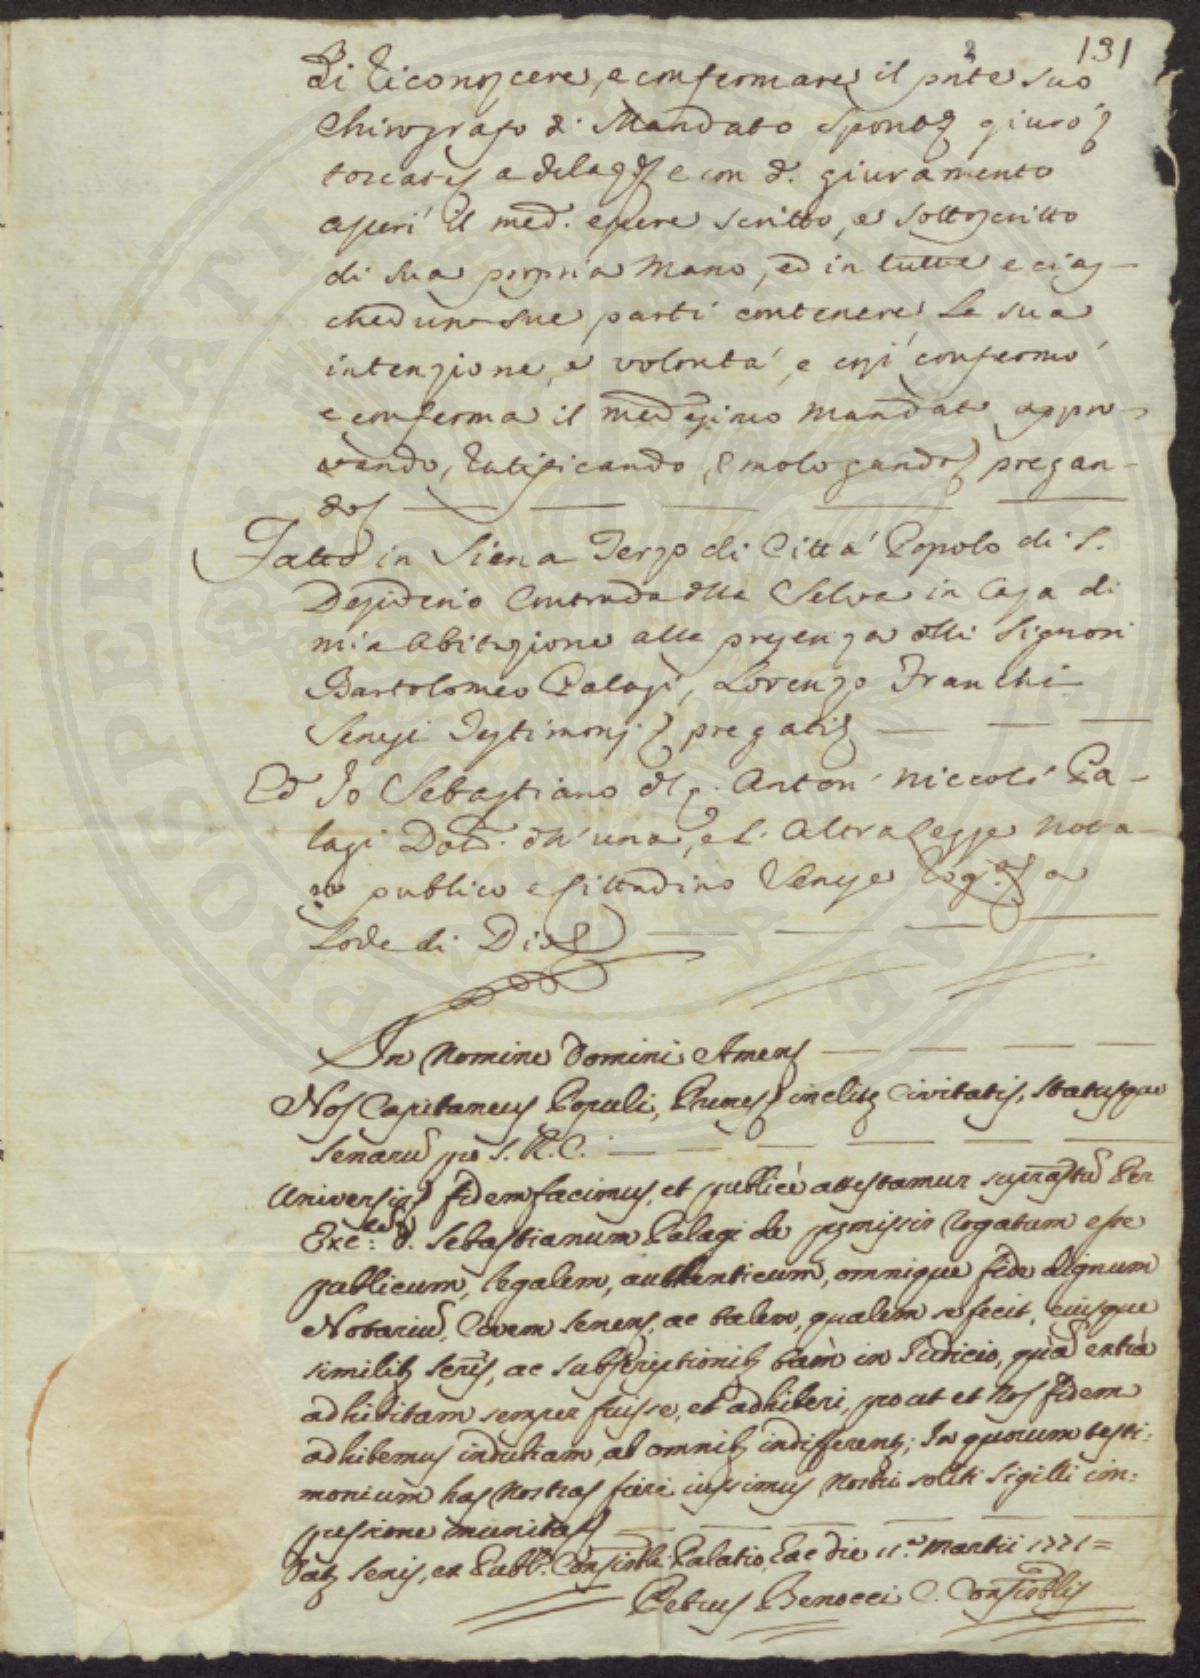 2 131
Di riconoscere, e confermare il pnte suo
Chirografo di Mandato spont giurò
toccate a delaq e con d. giuramento
asserì il med. essere scritto, e sottoscritto
di sua propria Mano, ed in tutte e cias-
cheduna sue parti contenere la sua
intenzione, e volontà, e così confermò
e conferma il medesimo Mandato appro-
vando, ratificando, emologando pregan-
do
Fatto in Siena Terzo di Città Popolo di S.
Desiderio Contrada dlla Selva in Casa di
mia abitazione alla presenza dlli Signori
Bartolomeo Palagi, Lorenzo Franchi
Senesi Testimonj pregati
Ed Io Sebastiano dl q. Anton Niccolò Pa-
lagi Dott. dll'una, e l'altra Legge Nota-
ro publico e Cittadino Senese Rog. a
Lode di Dio
In Nomine Domini Amen
Nos Capitaneus Populi, Priores inclite Civitatis, Statusque
Senarū pro S. R. C.
Universis fidem facimus, et publicè attestamur suprastū Per
Exc. D. Sebastianum Palagi de pmissis rogatum esse
publicum, legalem, authenticum, omnique fide dignum
Notariū, Civem Senens, ac talem, qualem se fecit, eiusque
similib scris, ac subscriptionib tam in Iudicio, quā extrà
adhibitam semper fuisse, et adhiberi, prout et Nos fidem
adhibemus indubiam, ab omnib indifferent; In quorum testi:
monium has Nostras fieri iussimus Nostri soliti Sigilli im:
pressione munitas
Dat Senis, ex Publ. Consistli Palatio, hac die 11.a Martii 1771=
Petrus Benocci C. Consistlis